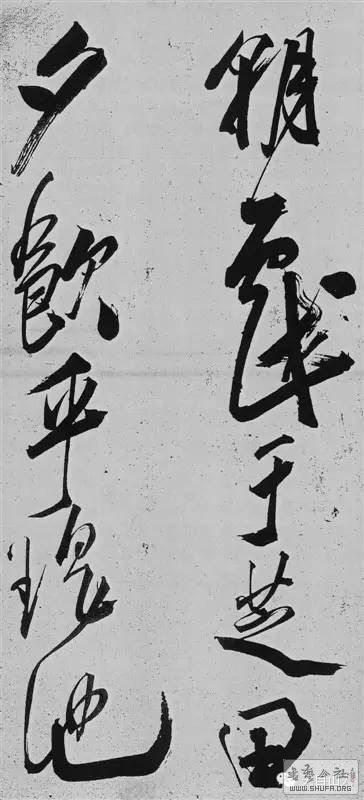 朝戲于芝田
夕飲乎瑶池
书艺公社
WWW.SHUFA.ORG